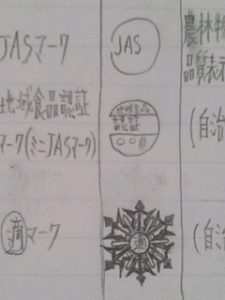 JASマーク
JAS
農林物
品質表示
地域食品認証
マーク(ミニJASマーク)
地域食品
認証
○○県
(自治
適マーク
適
(自治